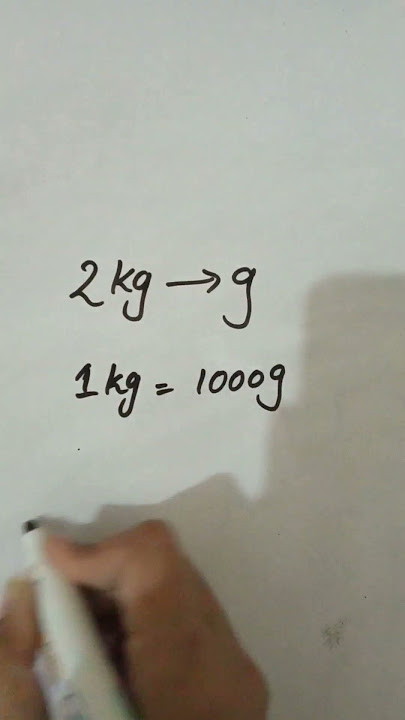 2kg → g
1kg = 1000g